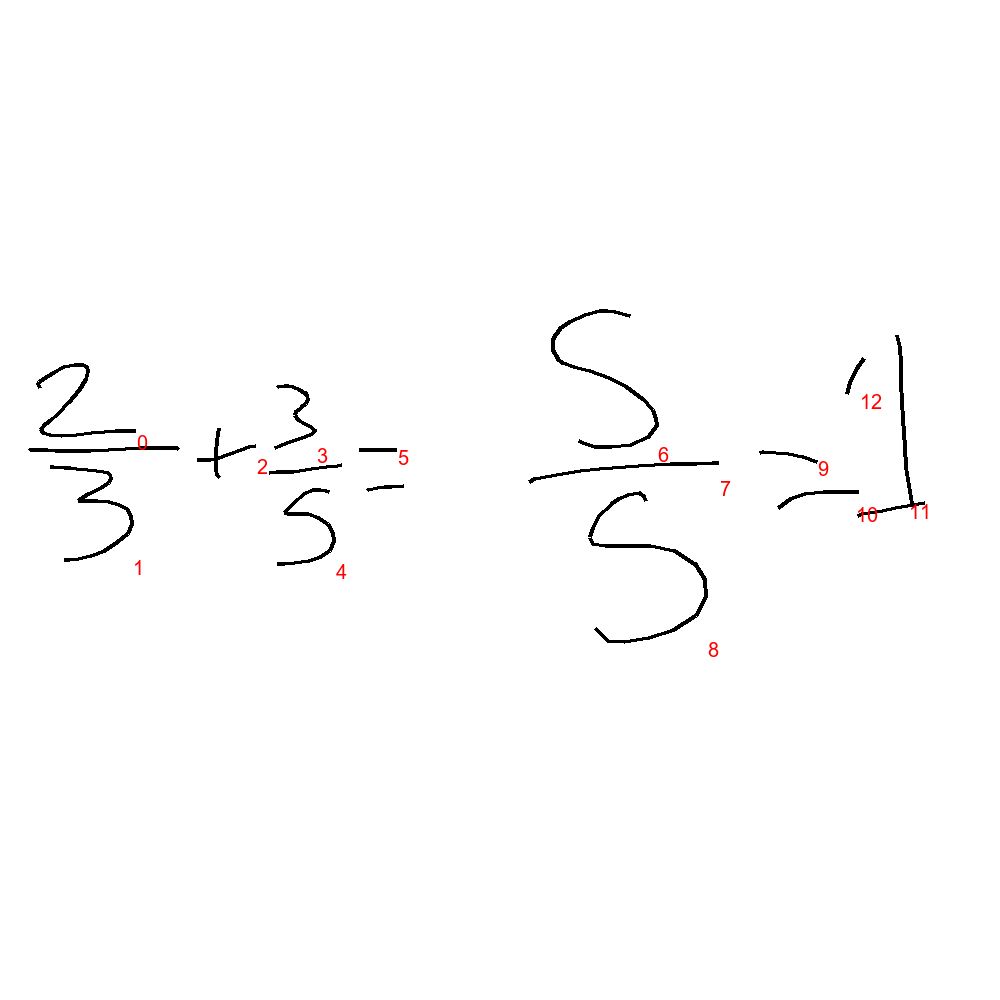 2/3 + 3/5 = 5/5 = 1
0 1 2 3 4 5 6 7 8 9 10 11 12